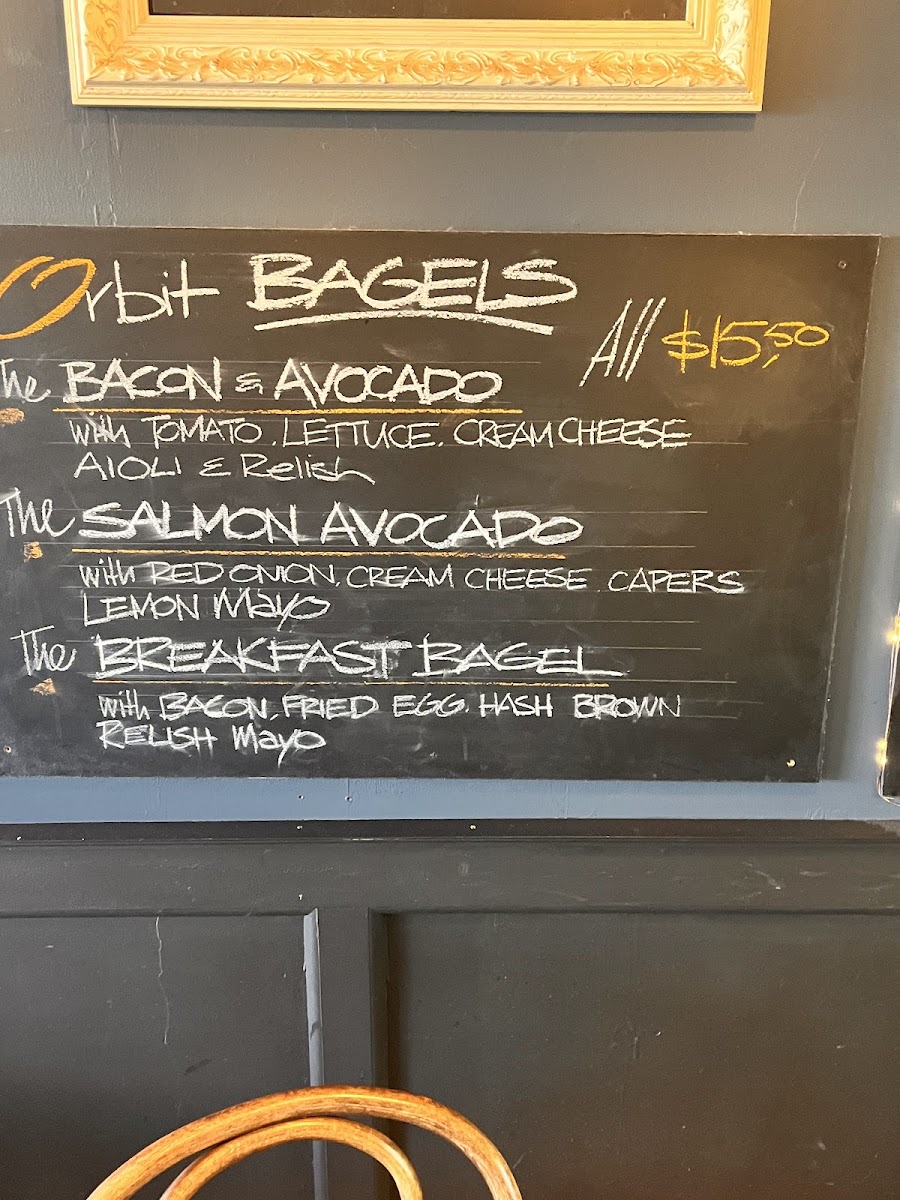 Orbit BAGELS
All $15.50
The BACON & AVOCADO
with TOMATO, LETTUCE, CREAM CHEESE
AIOLI & Relish
The SALMON AVOCADO
with RED ONION, CREAM CHEESE CAPERS
LEMON Mayo
The BREAKFAST BAGEL
with BACON, FRIED EGG, HASH BROWN
RELISH Mayo